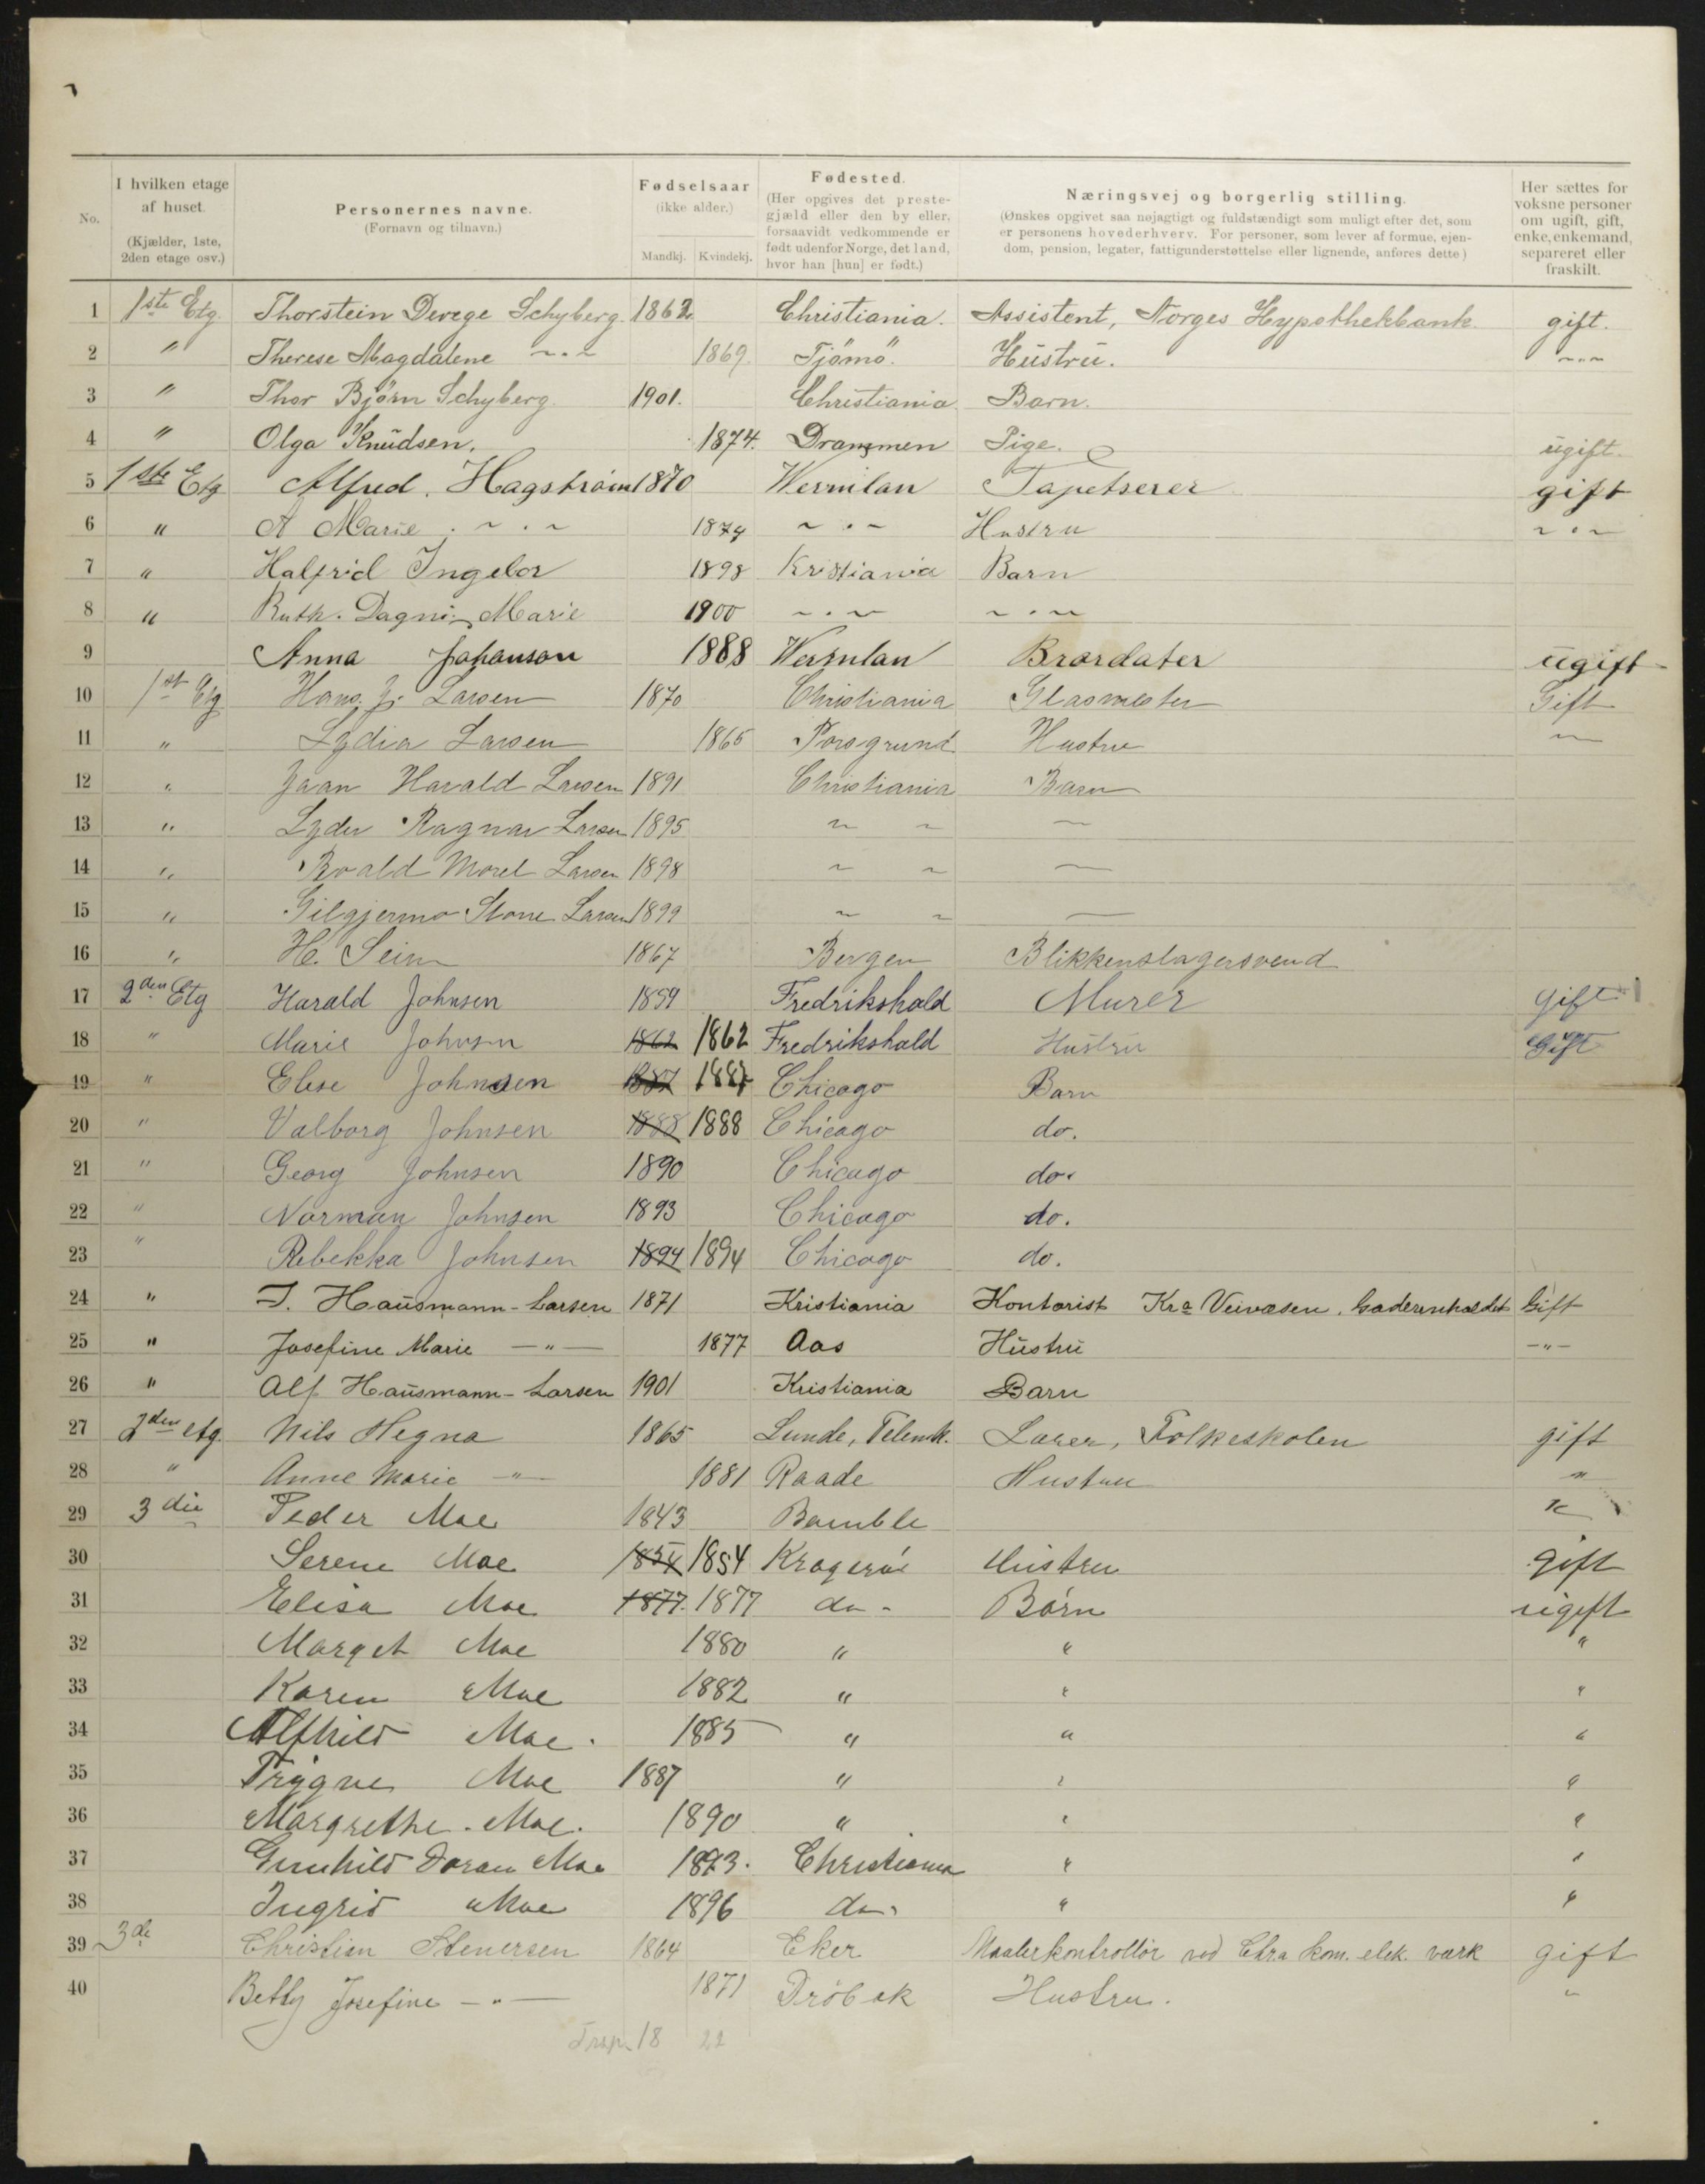 No. I hvilken etage af huset. (Kjælder, 1ste, 2den etage osv.) Personernes navne. (Fornavn og tilnavn.) Fødselsaar (ikke alder.) Mandkj. Kvindekj. Fødested. (Her opgives det prestegjæld eller den by eller, forsaavidt vedkommende er født udenfor Norge, det land, hvor han [hun] er født.) Næringsvej og borgerlig stilling. (Ønskes opgivet saa nøjagtigt og fuldstændigt som muligt efter det, som er personens hovederhverv. For personer, som lever af formue, ejendom, pension, legater, fattigunderstøttelse eller lignende, anføres dette) Her sættes for voksne personer om ugift, gift, enke, enkemand, separeret eller fraskilt.
1 1ste Etg. Thorstein Devege Schyberg. 1862. Christiania. Assistent, Norges Hypothekbank. gift.
2 " Therese Magdalene ~·~ 1869. Tjömö. Hustru. ~·~
3 " Thor Björn Schyberg. 1901. Christiania. Barn.
4 " Olga Knudsen. 1874. Drammen Pige. ugift.
5 1ste Etg Alfred. Hagström 1870 Wermlan Tapetserer gift
6 " A Marie. ~·~ 1874 ~·~ Hustru ~·~
7 " Halfrid Ingebor 1898 Kristiania Barn
8 " Ruth. Dagni Marie 1900 ~·~ ~·~
9 Anna Johanson 1888 Wermlan Brordater ugift
10 1st Etg Hans. J. Larsen 1870 Christiania Glasmester Gift
11 " Lydia Larsen 1865 Porsgrund Hustru ~
12 " Jaan Harald Larsen 1891 Christiania Barn
13 " Lyder Ragnar Larsen 1895 ~ ~ ~
14 " Roald Morel Larsen 1898 ~ ~ ~
15 " Gilgjermo Stone Larsen 1899 ~ ~ ~
16 " H. Seim 1867 Bergen Blikkenslagersvend
17 2den Etg Harald Johnsen 1859 Fredrikshald Murer gift
18 " Marie Johnsen 1862 1862 Fredrikshald Hustru Gift
19 " Elise Johnsen 1887 1887 Chicago Barn
20 " Valborg Johnsen 1888 1888 Chicago do.
21 " Georg Johnsen 1890 Chicago do.
22 " Norman Johnsen 1893 Chicago do.
23 " Rebekka Johnsen 1894 1894 Chicago do.
24 " J. Hausmann-Larsen 1871 Kristiania Kontorist Kra Veivæsen, Gaderenholdet Gift
25 " Josefine Marie —"— 1877 Aas Hustru —"—
26 " Alf Hausmann-Larsen 1901 Kristiania Barn
27 2den etg. Nils Hegna 1865 Lunde, Telemk. Lærer, Folkeskolen gift
28 " Anne Marie —"— 1881 Raade Hustru "
29 3die Peder Moe 1843 Bamble "
30 Serene Moe 1854 1854 Kragerøe Hustru gift
31 Elisa Moe 1877. 1877 do - Börn ugift
32 Marget Moe 1880 " " "
33 Karen Moe 1882 " " "
34 Alfhild Moe. 1885 " " "
35 Trygve Moe 1887 " " "
36 Margrethe. Moe. 1890 " " "
37 Gunhild Doran Moe 1893. Christiania " "
38 Ingrid Moe 1896 do. " "
39 3de Christian Stenersen 1864 Eker Maalerkontrollör ved Chra kom. elek. værk gift
40 Betty Josefine —"— 1871 Dröbak Hustru. "
Trsp. 18 22